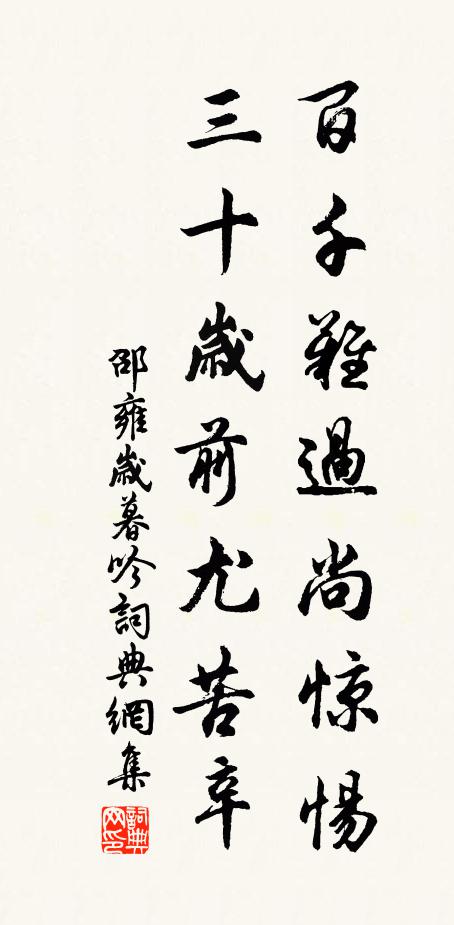 百千難過尚惊惕
三十歲前尤苦辛
邵雍歲暮吟詞典網集
詞典
网印